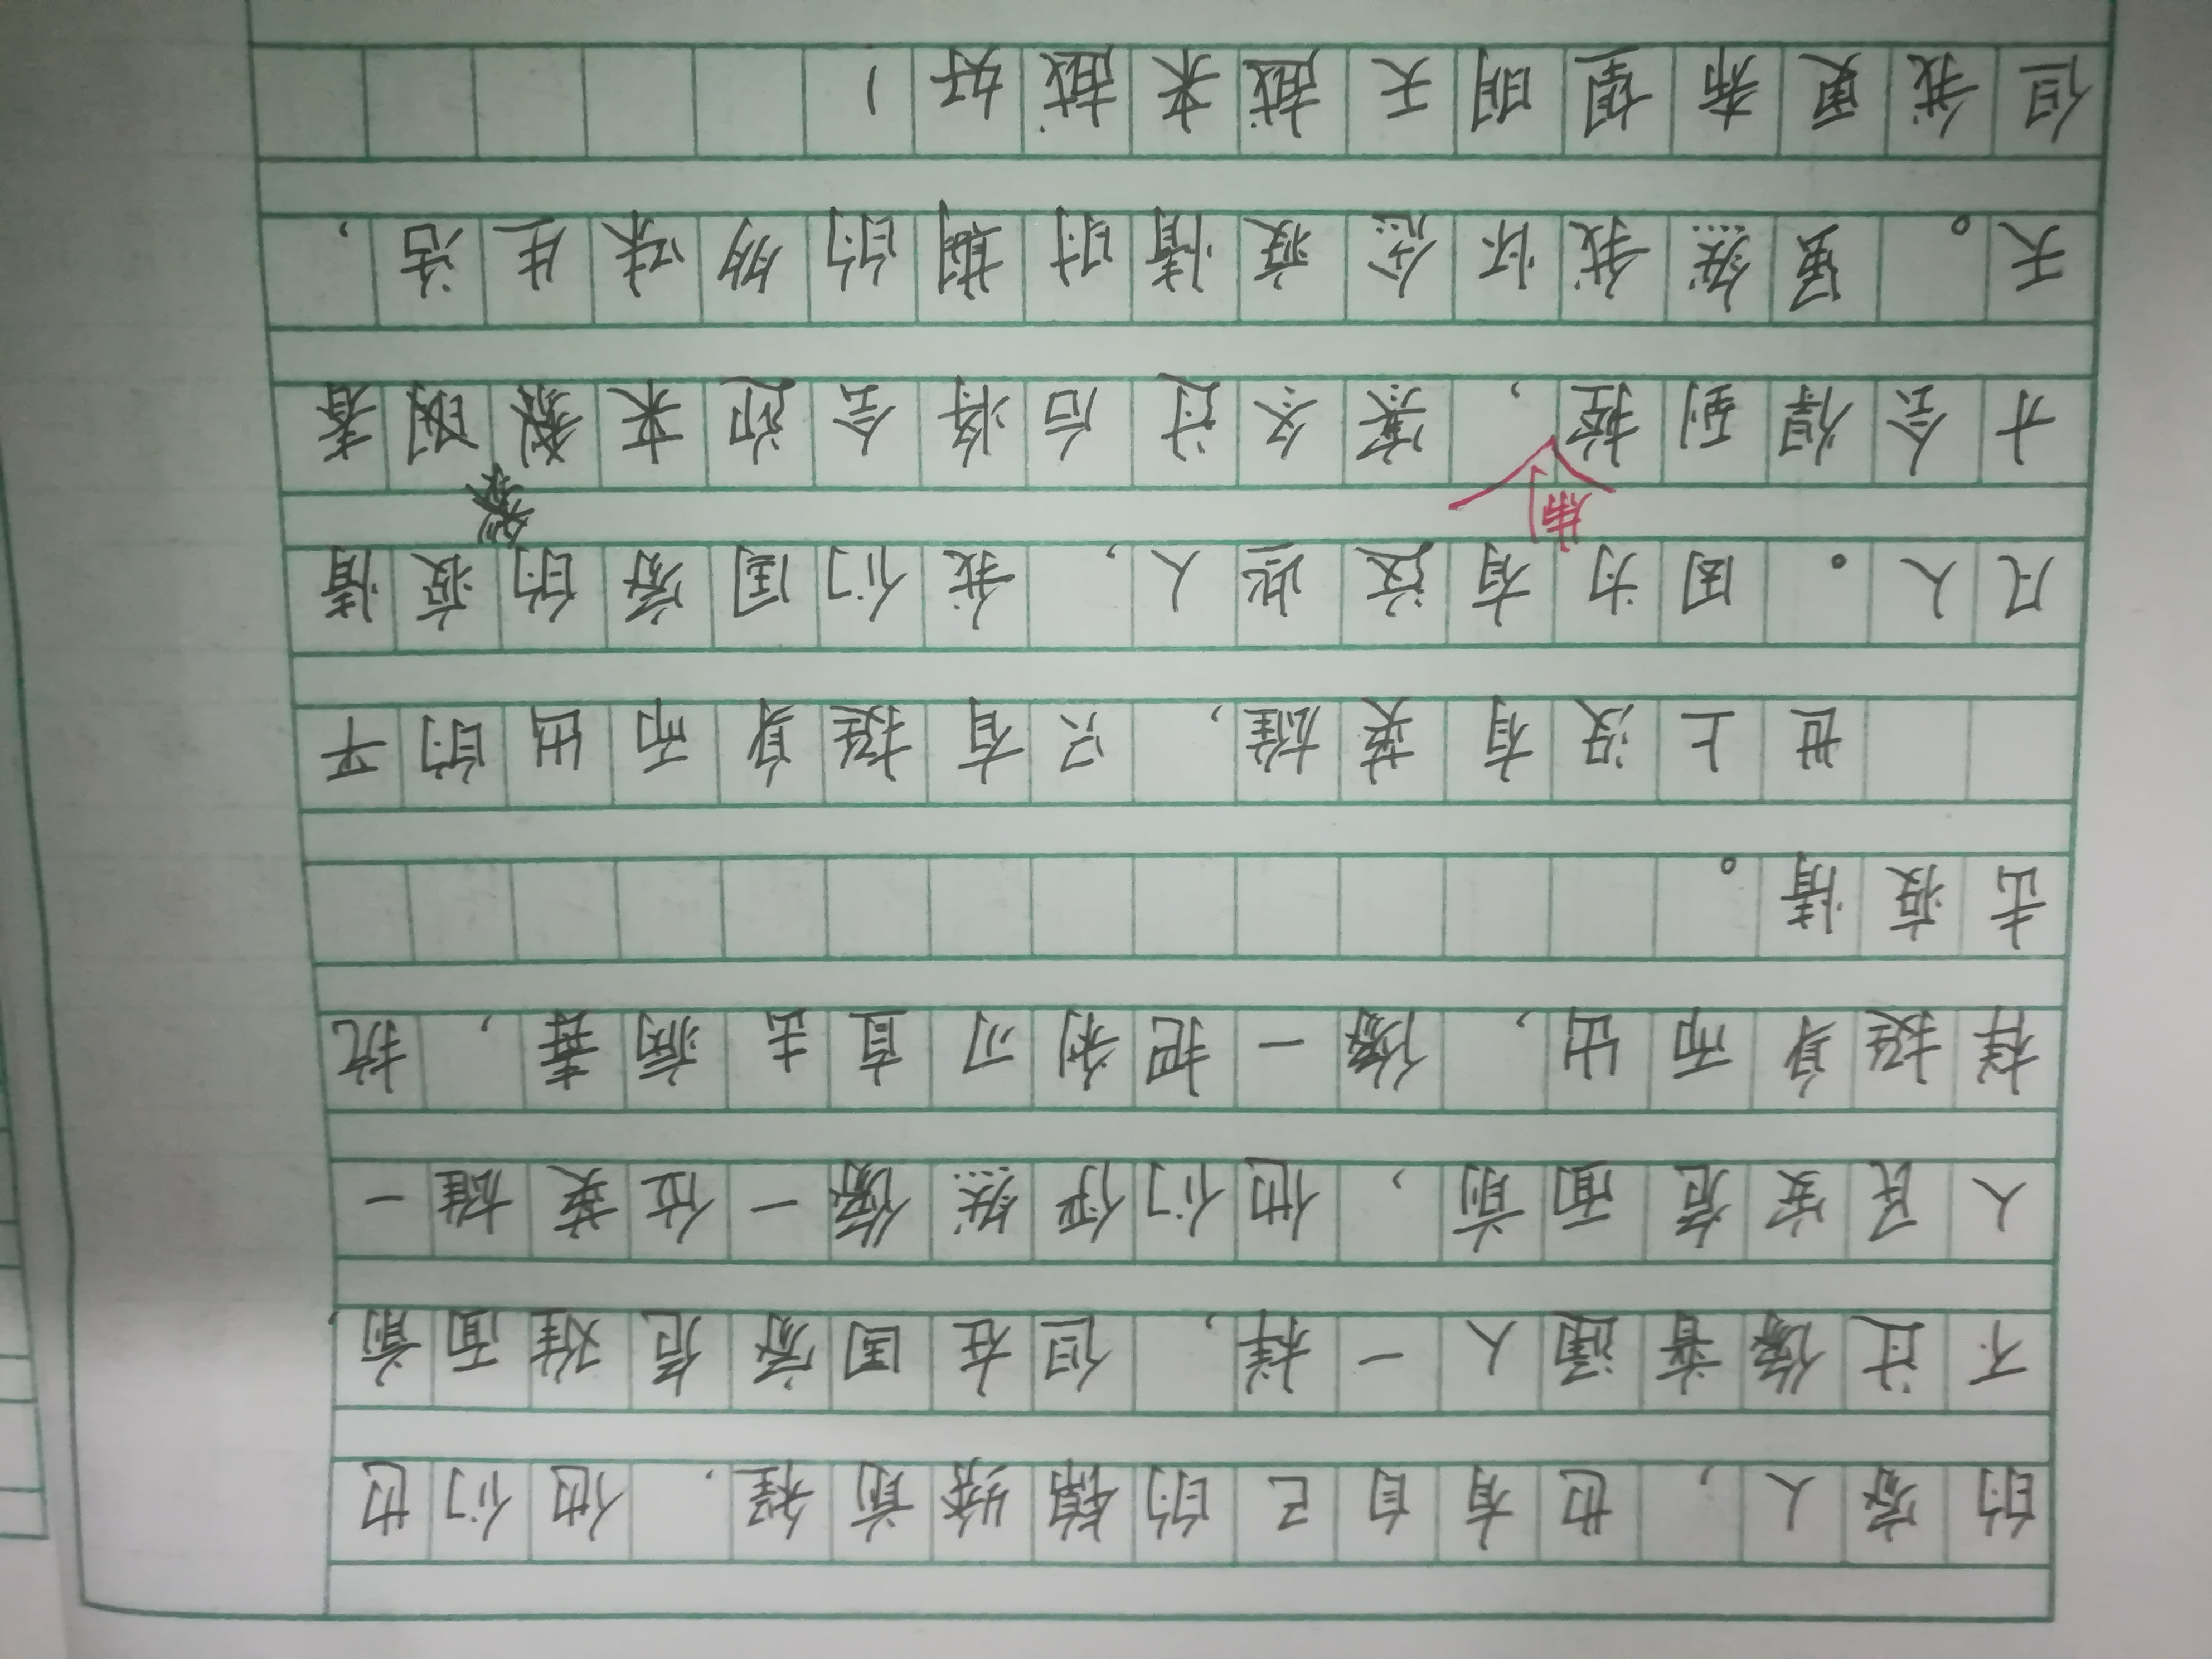 的家人，也有自己的锦绣前程，他们也
不过像普通人一样，但在国家危难面前
人民安危面前，他们俨然像一位英雄一
样挺身而出，像一把利刃直击病毒，抗
击疫情。
世上没有英雄，只有挺身而出的平
凡人。因为有这些人，我们国家的疫情
制
才会得到控，寒冬过后将会迎来春
天。虽然我怀念疫情时期的多味生活，
但我更希望明天越来越好！